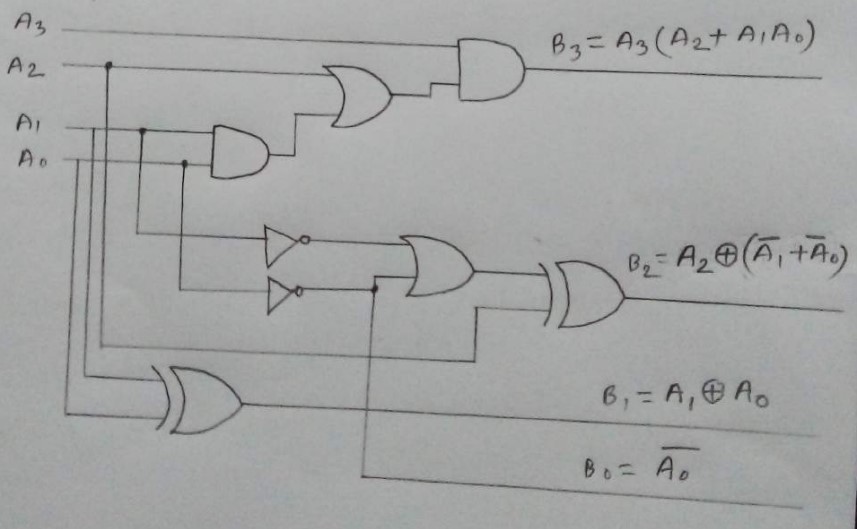 A₃
B₃ = A₃ (A₂ + A₁A₀)
A₂
A₁
A₀
B₂ = A₂ ⊕ (A̅₁ + A̅₀)
B₁ = A₁ ⊕ A₀
B₀ = A̅₀